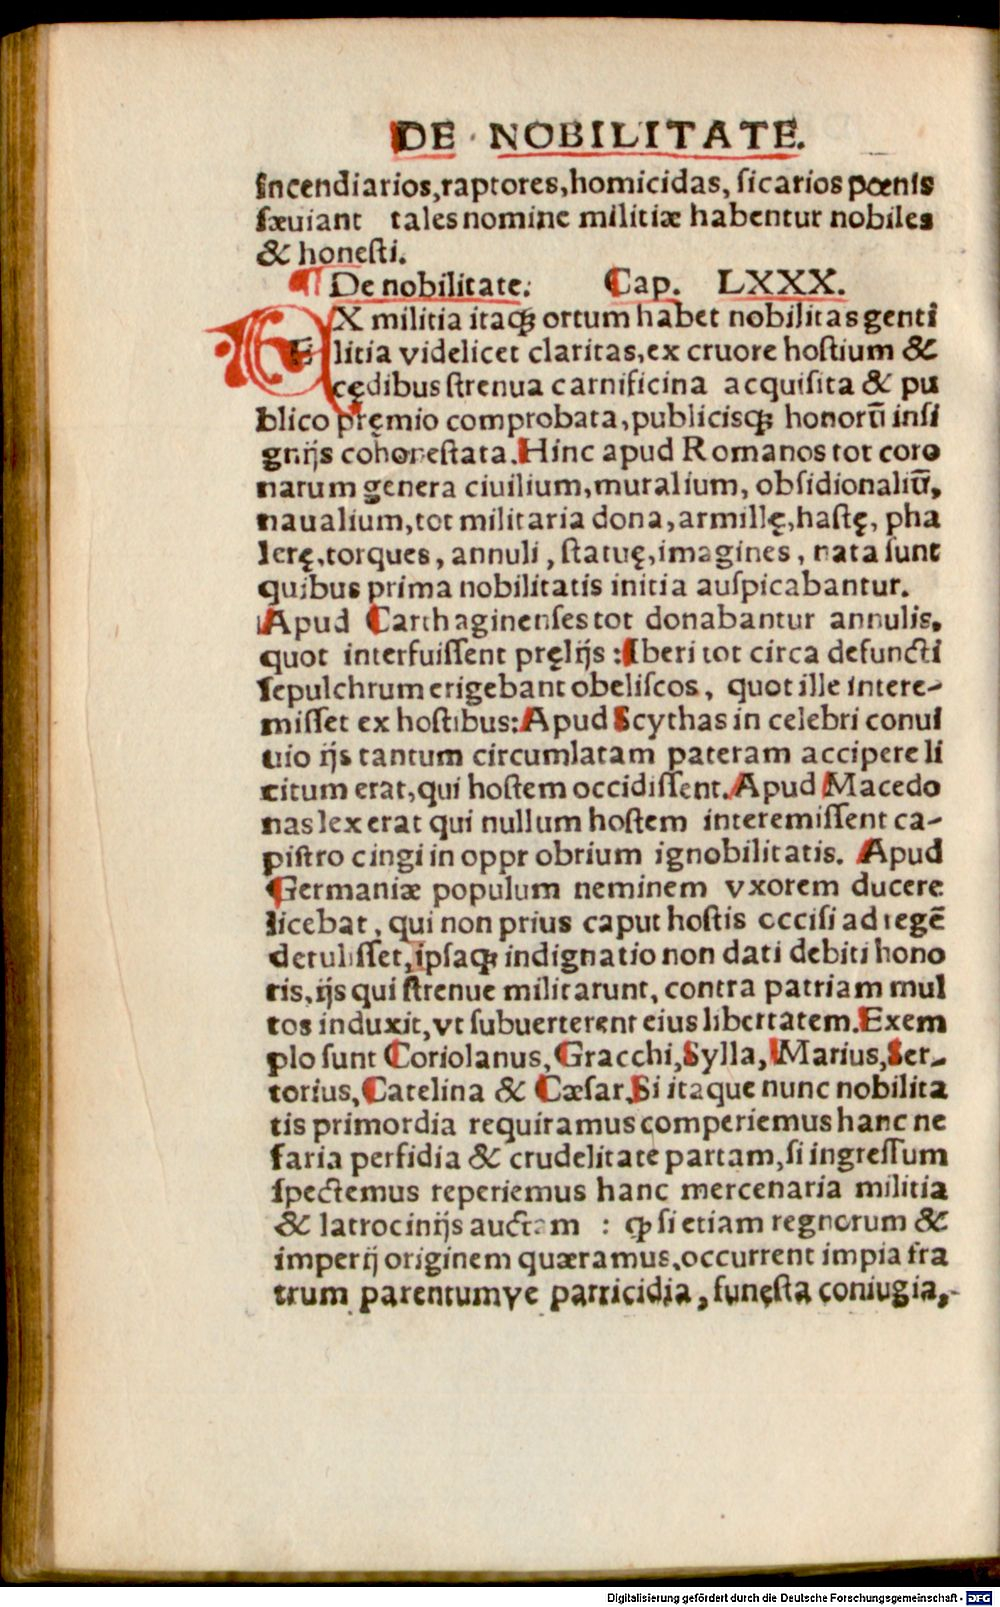 DE NOBILITATE.
incendiarios,raptores,homicidas, sicarios pœnis
sæuiant tales nomine militiæ habentur nobiles
& honesti.
¶ De nobilitate. Cap. LXXX.
EX militia itaqꝫ ortum habet nobilitas genti
litia videlicet claritas,ex cruore hostium &
cędibus strenua carnificina acquisita & pu
blico pręmio comprobata,publicisqꝫ honorū insi
gnijs cohonestata.Hinc apud Romanos tot coro
narum genera ciuilium,muralium, obsidionaliū,
naualium,tot militaria dona,armillę,hastę, pha
lerę,torques, annuli, statuę,imagines, nata sunt
quibus prima nobilitatis initia auspicabantur.
Apud Carthaginenses tot donabantur annulis,
quot interfuissent pręlijs :Iberi tot circa defuncti
sepulchrum erigebant obeliscos, quot ille intere-
misset ex hostibus:Apud Scythas in celebri conui
uio ijs tantum circumlatam pateram accipere li
citum erat,qui hostem occidissent.Apud Macedo
nas lex erat qui nullum hostem interemissent ca-
pistro cingi in opprobrium ignobilitatis. Apud
Germaniæ populum neminem vxorem ducere
licebat, qui non prius caput hostis occisi ad regē
detulisset,ipsaqꝫ indignatio non dati debiti hono
ris,ijs qui strenue militarunt, contra patriam mul
tos induxit,vt subuerterent eius libertatem.Exem
plo sunt Coriolanus,Gracchi,Sylla,Marius,Ser-
torius,Catelina & Cæsar.Si itaque nunc nobilita
tis primordia requiramus comperiemus hanc ne
faria perfidia & crudelitate partam,si ingressum
spectemus reperiemus hanc mercenaria militia
& latrocinijs auctam : ꝙ si etiam regnorum &
imperij originem quæramus,occurrent impia fra
trum parentumve parricidia,funesta coniugia,
Digitalisierung gefördert durch die Deutsche Forschungsgemeinschaft - DFG